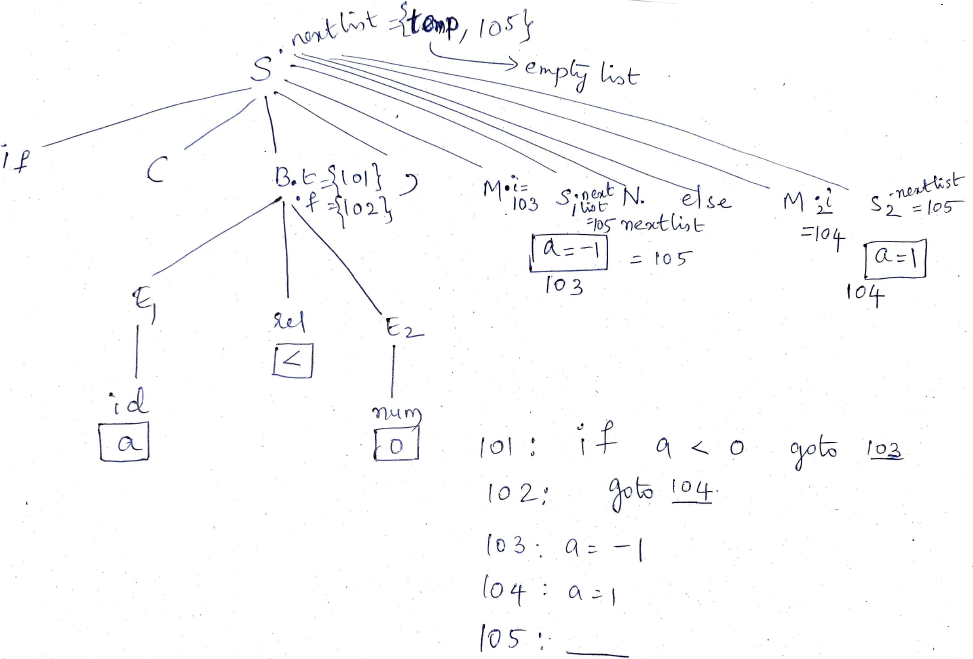 nextlist = {temp, 105}
S.
→ empty list
if
C
B.t={101}
.f={102}
)
M.i=
103
S1.next
list
=105
a=-1
103
N.
nextlist
= 105
else
M2.i
=104
S2.nextlist
=105
a=1
104
E1
rel
<
E2
id
a
num
0
101: if a < 0 goto 103
102: goto 104.
103: a = -1
104: a=1
105: ___